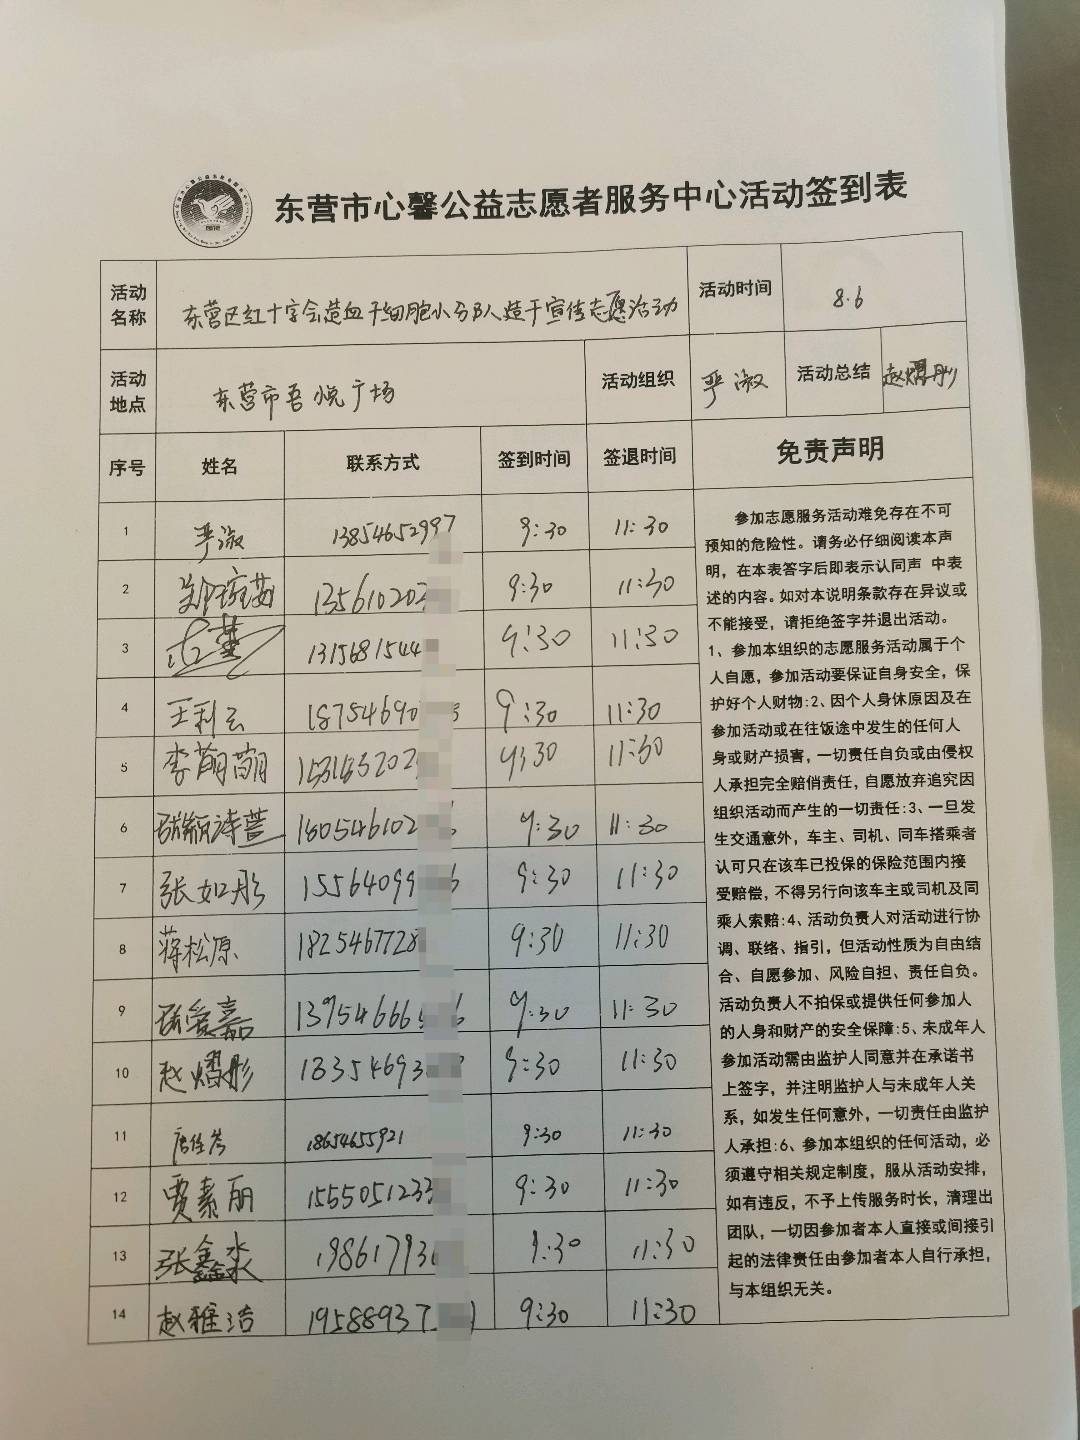 东营市心馨公益志愿者服务中心活动签到表
活动名称 东营区红十字会造血干细胞小分队造干宣传志愿活动 活动时间 8.6
活动地点 东营市吾悦广场 活动组织 严淑 活动总结 赵熠彤
序号 姓名 联系方式 签到时间 签退时间 免责声明
1 严淑 1385465299 9:30 11:30
2 135610202 9:30 11:30
3 1315681544 9:30 11:30
4 王利云 18754690 9:30 11:30
5 李萌萌 9:30 11:30
6 160546102 9:30 11:30
7 张如彤 15564099 9:30 11:30
8 蒋松原 1825467728 9:30 11:30
9 张爱嘉 139546666 9:30 11:30
10 赵熠彤 183546938 9:30 11:30
11 1865465592 9:30 11:30
12 贾素丽 1555051233 9:30 11:30
13 张鑫淼 198617936 9:30 11:30
14 赵雅洁 19588937 9:30 11:30
参加志愿服务活动难免存在不可
预知的危险性。请务必仔细阅读本声
明，在本表答字后即表示认同声 中表
述的内容。如对本说明条款存在异议或
不能接受，请拒绝签字并退出活动。
1、参加本组织的志愿服务活动属于个
人自愿，参加活动要保证自身安全，保
护好个人财物:2、因个人身休原因及在
参加活动或在往饭途中发生的任何人
身或财产损害，一切责任自负或由侵权
人承担完全赔俏责任，自愿放弃追究因
组织活动而产生的一切责任:3、一旦发
生交通意外，车主、司机、同车搭乘者
认可只在该车已投保的保险范围内接
受赔偿，不得另行向该车主或司机及同
乘人索赔:4、活动负责人对活动进行协
调、联络、指引，但活动性质为自由结
合、自愿参加、风险自担、责任自负。
活动负责人不拍保或提供任何参加人
的人身和财产的安全保障:5、未成年人
参加活动需由监护人同意并在承诺书
上签字，并注明监护人与未成年人关
系，如发生任何意外，一切责任由监护
人承担:6、参加本组织的任何活动，必
须遵守相关规定制度，服从活动安排，
如有违反，不予上传服务时长，清理出
团队，一切因参加者本人直接或间接引
起的法律责任由参加者本人自行承担，
与本组织无关。